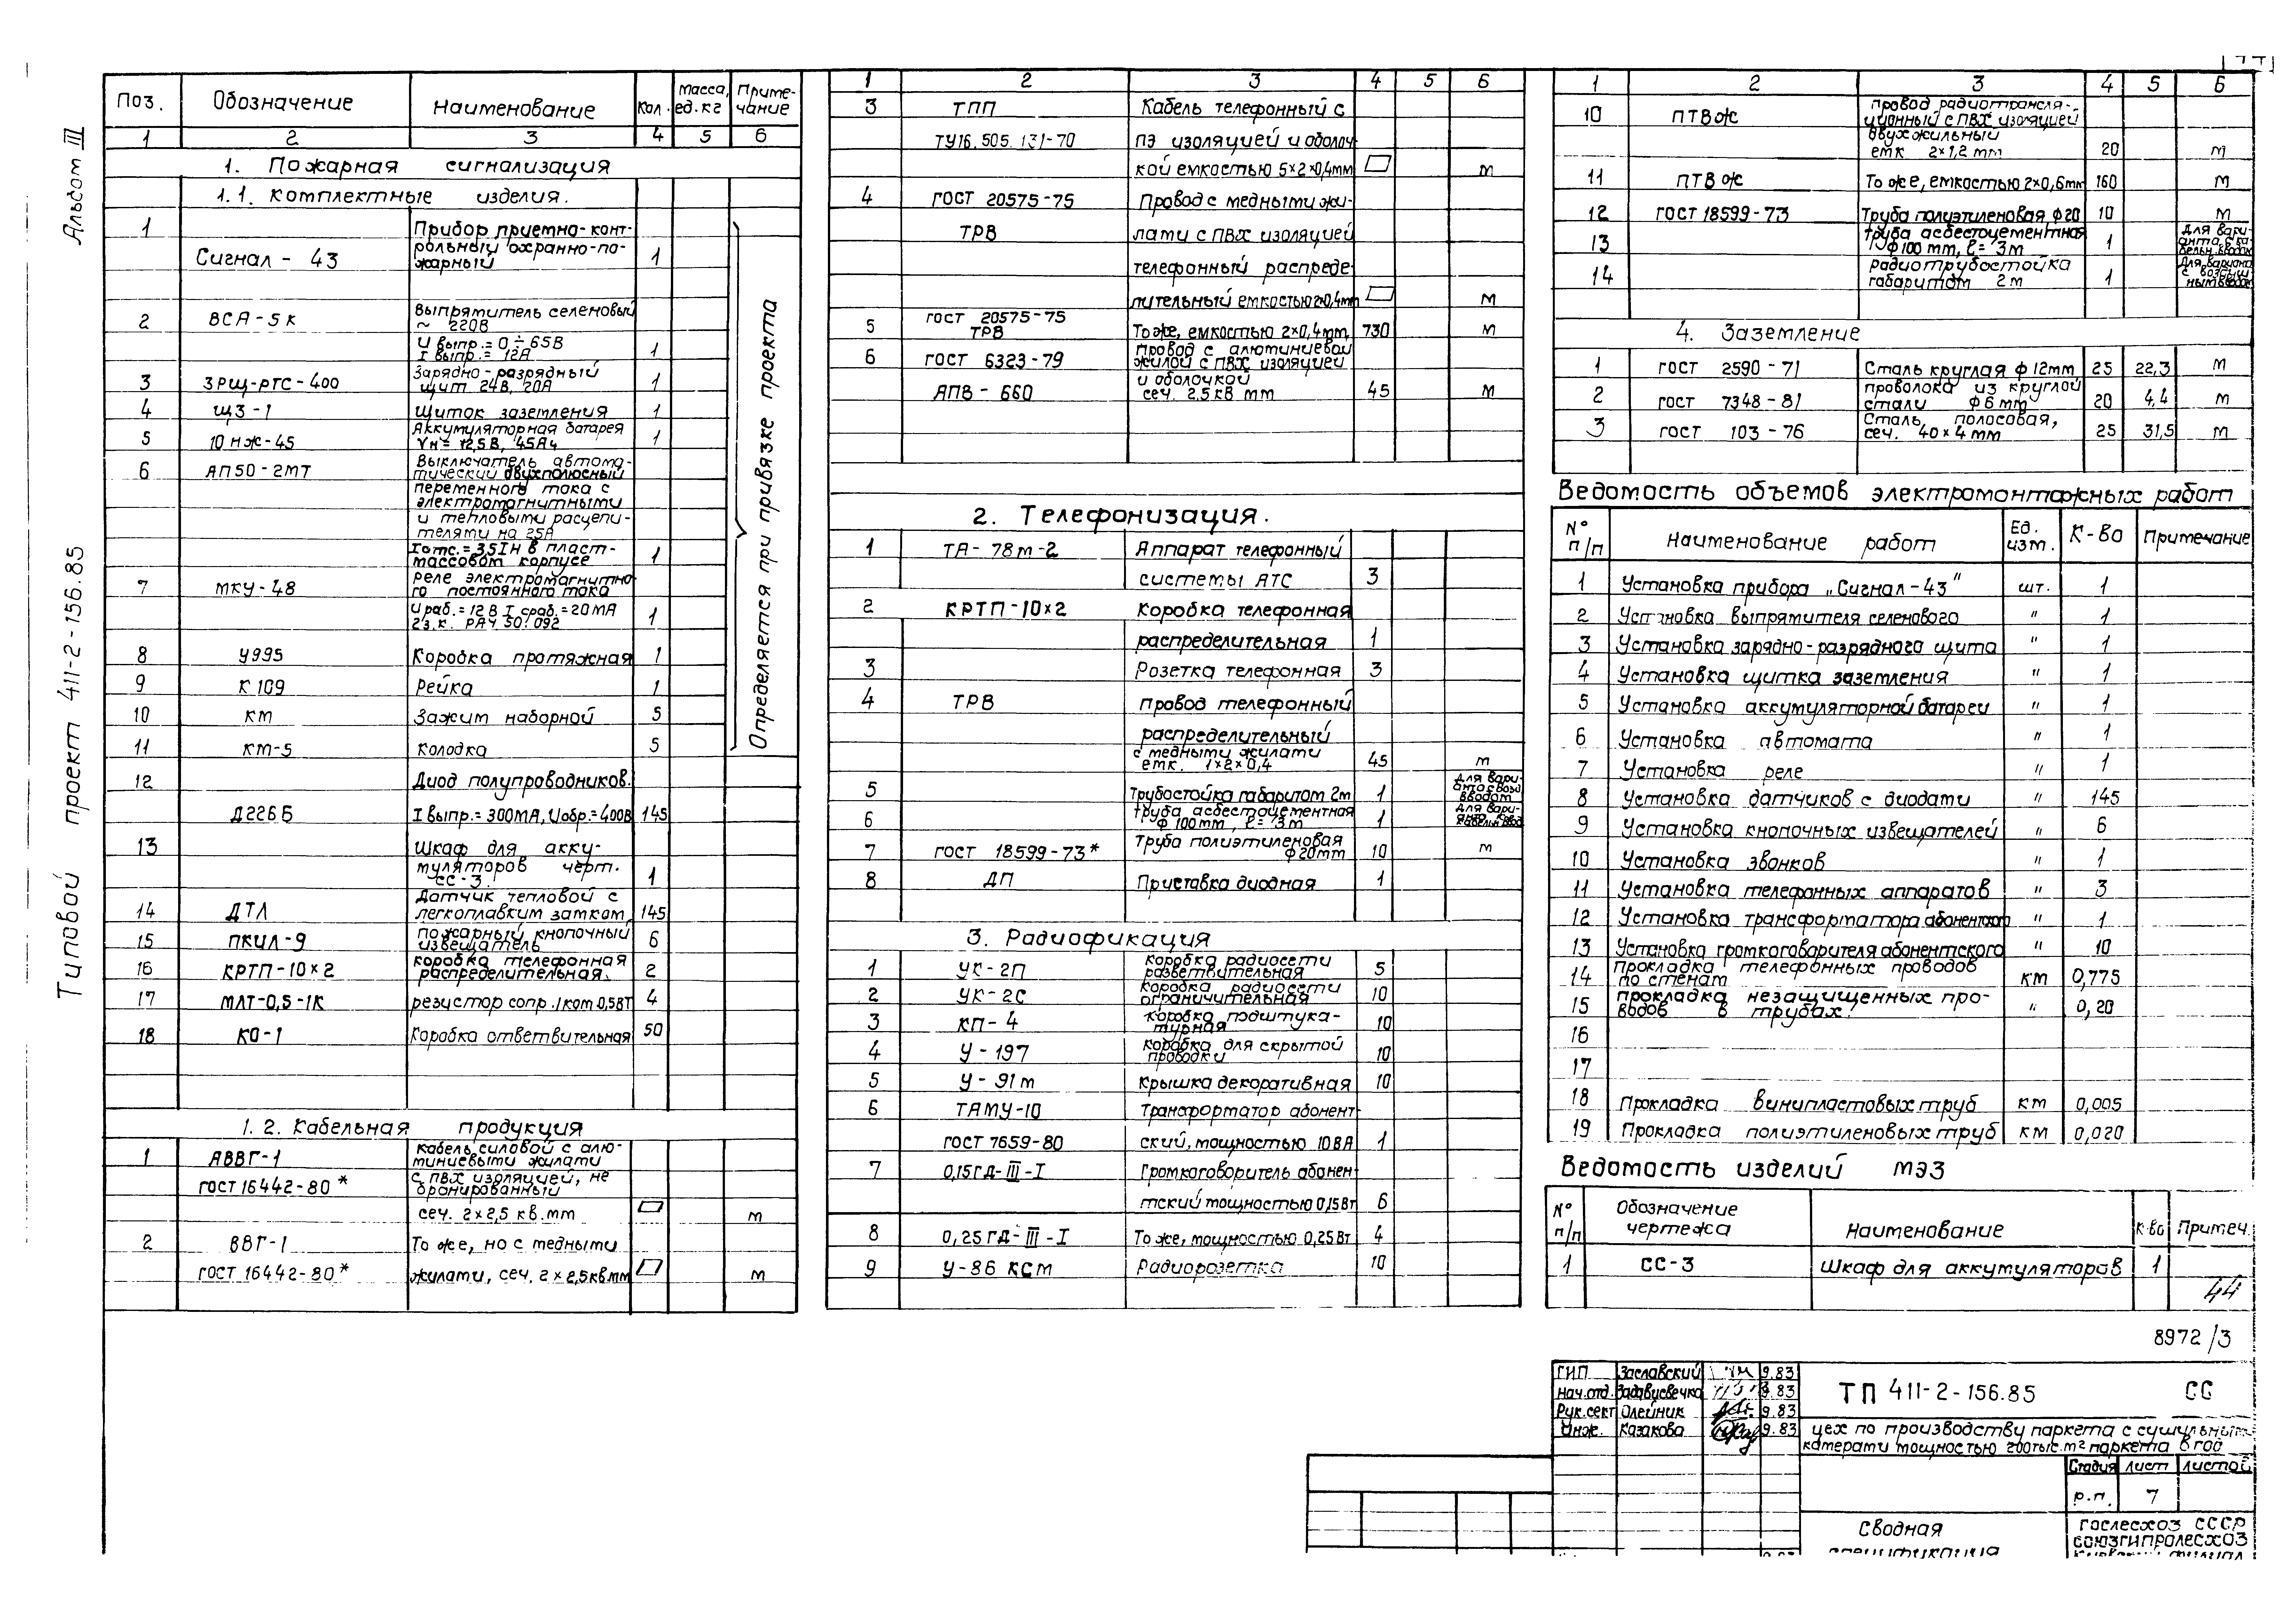 Типовой проект 411-2-156.85 Альбом III
Поз. Обозначение Наименование Кол. Масса, ед. кг Приме-чание
1 2 3 4 5 6
1. Пожарная сигнализация
1.1. Комплектные изделия.
1 Прибор приемно-конт-
Сигнал - 43 рольный охранно-по-
жарный 1
2 ВСА-5к Выпрямитель селеновый
~ 220В
U выпр. = 0 ÷ 65В
I выпр. = 12А 1
3 ЗРЩ-РТС-400 Зарядно-разрядный
щит 24В, 20А 1
4 ЩЗ-1 Щиток заземления 1
5 10 НЖ-45 Аккумуляторная батарея
Vн = 12,5В, 45Ач 1
6 АП50-2МТ Выключатель автома-
тический двухполюсный
переменного тока с
электромагнитными
и тепловыми расцепи-
телями на 25А
Iотс. = 3,5Iн в пласт-
массовом корпусе 1
7 МКУ-48 Реле электромагнитно-
го постоянного тока
U раб. = 12В I сраб. = 20МА
2з.к. РАЧ 50. 092 1
8 У995 Коробка протяжная 1
9 К109 Рейка 1
10 КМ Зажим наборной 5
11 КМ-5 Колодка 5
Определяется при привязке проекта
12 Диод полупроводников.
Д226Б I выпр. = 300МА, Uобр. = 400В 145
13 Шкаф для акку-
муляторов черт.
СС-3. 1
14 ДТЛ Датчик тепловой с
легкоплавким замком, 145
15 ПКИЛ-9 пожарный кнопочный
извещатель 6
16 КРТП-10×2 коробка телефонная
распределительная. 2
17 МЛТ-0,5-1К резистор сопр. 1ком 0,5ВТ 4
18 КО-1 Коробка ответвительная 50
1.2. Кабельная продукция
1 АВВГ-1 Кабель силовой с алю-
миниевыми жилами
ГОСТ 16442-80* с ПВХ изоляцией, не
бронированный
сеч. 2×2,5 кв.мм м
2 ВВГ-1 То же, но с медными
ГОСТ 16442-80* жилами, сеч. 2×2,5 кв мм м
1 2 3 4 5 6
3 ТПП Кабель телефонный с
ТУ16.505.131-70 ПЭ изоляцией и оболоч-
кой емкостью 5×2×0,4мм м
4 ГОСТ 20575-75 Провод с медными жи-
ТРВ лами с ПВХ изоляцией
телефонный распреде-
лительный емкостью 2×0,4мм м
5 ГОСТ 20575-75
ТРВ То же, емкостью 2×0,4мм, 730 м
6 ГОСТ 6323-79 Провод с алюминиевой
жилой с ПВХ изоляцией
и оболочкой
АПВ - 660 сеч. 2,5 кв мм 45 м
2. Телефонизация.
1 ТА-78м-2 Аппарат телефонный
системы АТС 3
2 КРТП-10×2 Коробка телефонная
распределительная 1
3 Розетка телефонная 3
4 ТРВ Провод телефонный
распределительный
с медными жилами
емк. 1×2×0,4 45 м
5 Трубостойка габаритом 2м 1 Для вари-анта с возд. вводом
6 Труба асбестоцементная
ф 100мм, ℓ = 3м 1
7 ГОСТ 18599-73* Труба полиэтиленовая
ф20мм 10 м
8 ДП Приставка диодная 1
3. Радиофикация
1 УК-2П Коробка радиосети
разветвительная 5
2 УК-2С Коробка радиосети
ограничительная 10
3 КП-4 Коробка подштука-
турная 10
4 У-197 Коробка для скрытой
проводки 10
5 У-91м Крышка декоративная 10
6 ТАМУ-10 Трансформатор абонент-
ГОСТ 7659-80 ский, мощностью 10ВА 1
7 0,15ГД-III-I Громкоговоритель абонен-
тский мощностью 0,15Вт 6
8 0,25ГД-III-I То же, мощностью 0,25Вт 4
9 У-86 КСМ Радиорозетка 10
1 2 3 4 5 6
10 ПТВЖ Провод радиотрансля-
ционный с ПВХ изоляцией
двухжильный
емк 2×1,2 мм 20 м
11 ПТВЖ То же, емкостью 2×0,6мм 160 м
12 ГОСТ 18599-73 Труба полиэтиленовая, ф20 10 м
13 Труба асбестоцементная
ф100мм, ℓ = 3м 1 Для вари-анта с ка-бельн. вводом
14 Радиотрубостойка
габаритом 2м 1
4. Заземление
1 ГОСТ 2590-71 Сталь круглая ф 12мм 25 22,3 м
2 ГОСТ 7348-81 проволока из круглой
стали ф6мм 20 4,4 м
3 ГОСТ 103-76 Сталь полосовая,
сеч. 40×4мм 25 31,5 м
Ведомость объемов электромонтажных работ
N° п/п Наименование работ Ед. изм. К-во Примечание
1 Установка прибора „Сигнал-43" шт. 1
2 Установка выпрямителя селенового " 1
3 Установка зарядно-разрядного щита " 1
4 Установка щитка заземления " 1
5 Установка аккумуляторной батареи " 1
6 Установка автомата " 1
7 Установка реле " 1
8 Установка датчиков с диодами " 145
9 Установка кнопочных извещателей " 6
10 Установка звонков " 1
11 Установка телефонных аппаратов " 3
12 Установка трансформатора абонентского " 1
13 Установка громкоговорителя абонентского " 10
14 Прокладка телефонных проводов
по стенам км 0,775
15 Прокладка незащищенных про-
водов в трубах. " 0,20
16
17
18 Прокладка винипластовых труб км 0,005
19 Прокладка полиэтиленовых труб км 0,020
Ведомость изделий МЭЗ
N° п/п Обозначение чертежа Наименование К-во Примеч.
1 СС-3 Шкаф для аккумуляторов 1
44
8972/3
ГИП Заславский 9.83
Нач.отд. 9.83
Рук.сект Олейник 9.83
Инж. Казакова 9.83
ТП 411-2-156.85 СС
цех по производству паркета с сушильными
камерами мощностью 200тыс.м² паркета в год
Стадия Лист Листов
Р.п. 7
Сводная
спецификация
Гослесхоз СССР
СОЮЗГИПРОЛЕСХОЗ